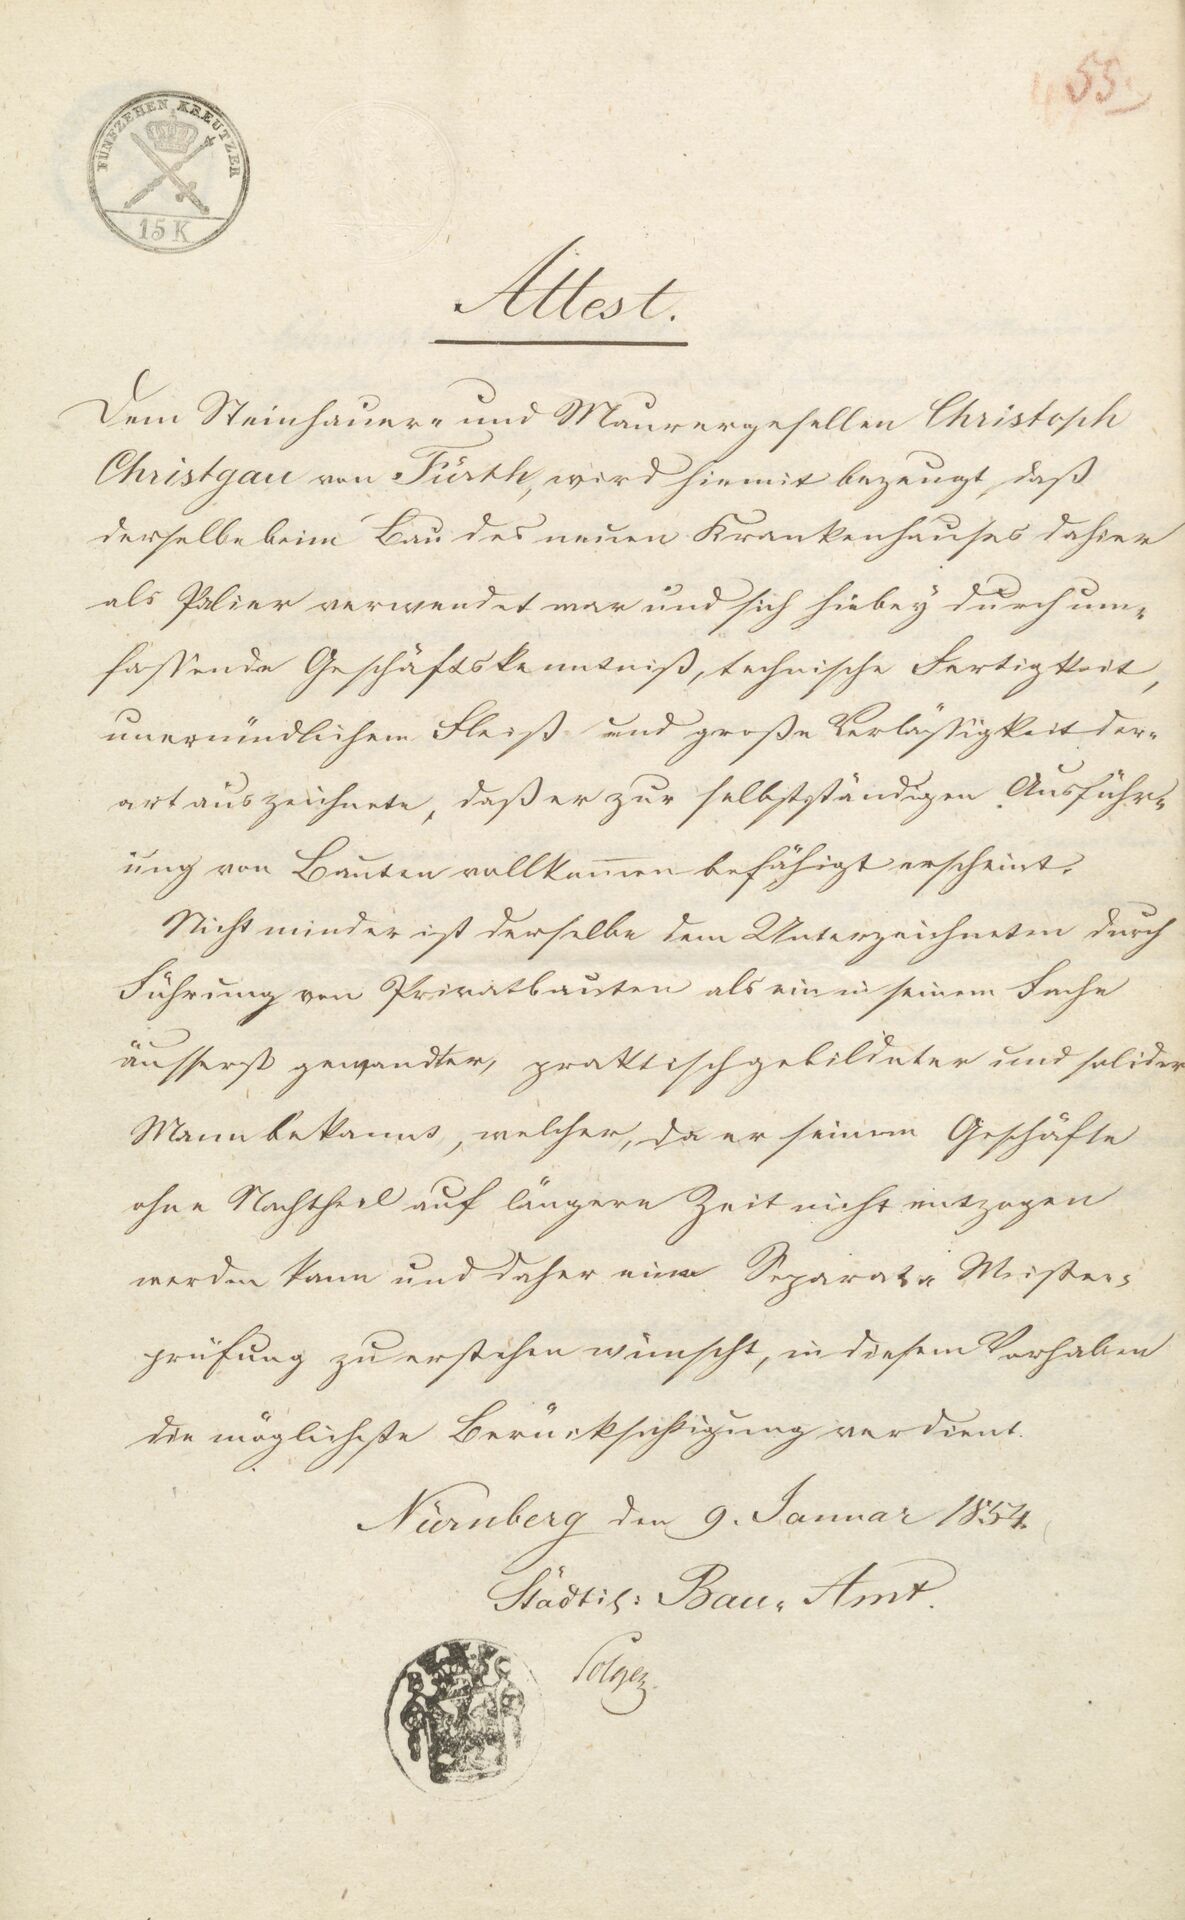 55.
FÜNFZEHEN KREUTZER
15 K
Attest.
Dem Steinhauer- und Maurergesellen Christoph
Christgau von Fürth, wird hiemit bezeugt, daß
derselbe beim Bau des neuen Krankenhauses dahier
als Palier verwendet war und sich hiebey durch um-
fassende Geschäftskenntniß, technische Fertigkeit,
unermüdlichem Fleiß und große Verlässigkeit der-
art auszeichnete, daß er zur selbstständigen Ausführ-
ung von Bauten vollkom̅en befähigt erscheint.
Nicht minder ist derselbe dem Unterzeichneten durch
Führung von Privatbauten als ein in seinem Fache
äusserst gewandter, praktisch gebildeter und solider
Mann bekannt, welcher, da er seinem Geschäfte
ohne Nachtheil auf längere Zeit nicht entzogen
werden kann und daher eine Separat- Meister-
prüfung zu erstehen wünscht, in diesem Vorhaben
die möglichste Berücksichtigung verdient.
Nürnberg den 9. Januar 1854.
Städtisch: Bau- Amt.
Solger